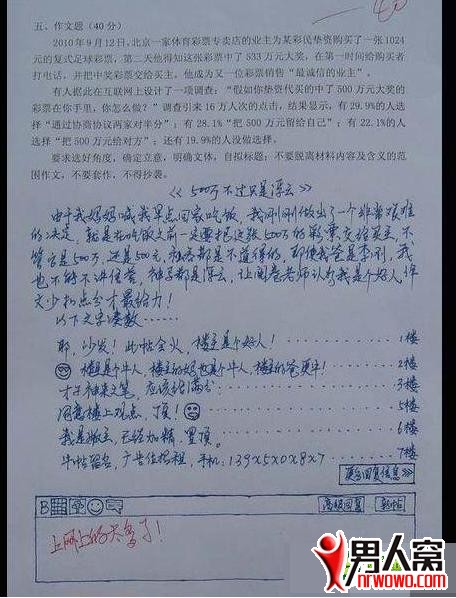 五、作文题（40分）
2010年9月12日，北京一家体育彩票专卖店的业主为某彩民垫资购买了一张1024
元的复式足球彩票，第二天他得知这张彩票中了533万元大奖，在第一时间给购买者
打电话，并把中奖彩票交给买主，他成为又一位彩票销售“最诚信的业主”。
有人据此在互联网上设计了一项调查：“假如你垫资代买的中了500万元大奖的
彩票在你手里，你怎么做？”调查引来16万人次的点击，结果显示，有29.9%的人选
择“通过协商协议两家对半分”；有28.1%“把500万元留给自己”；有22.1%的人
选择“把500万元给对方”；还有19.9%的人没做选择。
要求选好角度，确定立意，明确文体，自拟标题；不要脱离材料内容及含义的范
围作文，不要套作，不得抄袭。
《500万不过只是浮云》
由于我妈妈喊我早点回家吃饭，我刚刚做出了一个非常艰难
的决定，就是在吃饭之前一定要把这张500万的彩票交给买主，不
管它是500万，还是500元，私吞都是不道得的，即使我爸是李刚，我
也不能不讲信誉，神马都是浮云，让阅卷老师认为我是个好人，作
文少扣点分才最给力！
以下文字凑数……
耶，沙发！此帖会火，楼主是个好人！ 1楼
楼主是个牛人，楼主的妈也是个牛人，楼主的爸更牛！ 2楼
才子神来之笔，应该给满分 3楼
同意楼上观点，顶！ 5楼
我是版主，已经加精，置顶。 6楼
牛帖留名，广告位招租，手机：139x5x0x8x7 7楼
更多回复信息>>
B
高级回复
发帖
上网上的太多了！
男人窝
nrwowo.com